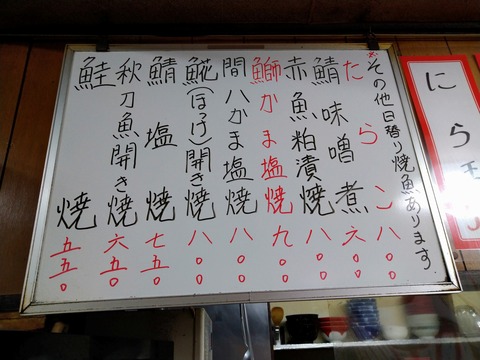 ※その他日替り焼魚あります
たらこ 八〇〇
鯖味噌煮 六〇〇
赤魚粕漬焼 八〇〇
鰤かま塩焼 九〇〇
間八かま塩焼 八〇〇
鯱(ほっけ)開き焼 八〇〇
鯖塩焼 七五〇
秋刀魚開き焼 六五〇
鮭焼 五五〇
にら玉